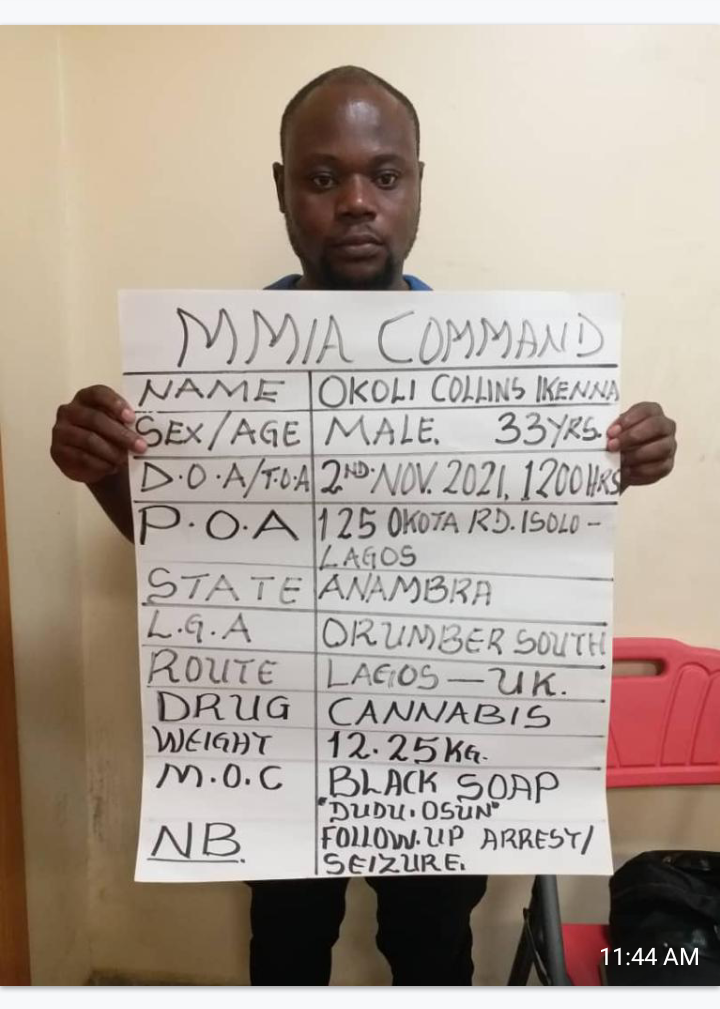 MMIA COMMAND
NAME OKOLI COLLINS IKENNA
SEX/AGE MALE. 33YRS.
D.O.A/T.O.A 2ND. NOV. 2021, 1200HRS
P.O.A 125 OKOTA RD. ISOLO -
LAGOS
STATE ANAMBRA
L.G.A ORUMBER SOUTH
ROUTE LAGOS — UK.
DRUG CANNABIS
WEIGHT 12.25KG.
M.O.C BLACK SOAP
"DUDU.OSUN"
NB. FOLLOW.UP ARREST/
SEIZURE.
11:44 AM